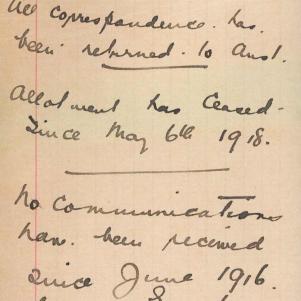 All correspondence has
been returned to Aust.
Allotment has Ceased -
since May 6th 1918.
No Communications
have been received
since June 1916.